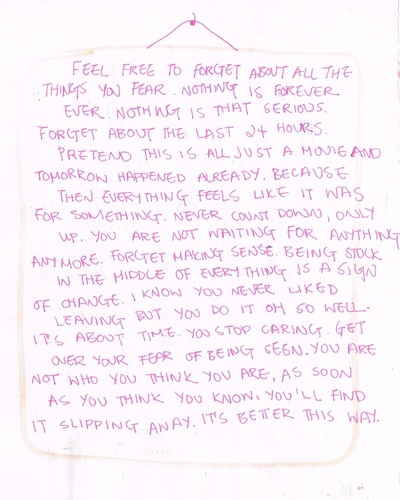 FEEL FREE TO FORGET ABOUT ALL THE
THINGS YOU FEAR. NOTHING IS FOREVER
EVER. NOTHING IS THAT SERIOUS.
FORGET ABOUT THE LAST 24 HOURS.
PRETEND THIS IS ALL JUST A MOVIE AND
TOMORROW HAPPENED ALREADY. BECAUSE
THEN EVERYTHING FEELS LIKE IT WAS
FOR SOMETHING. NEVER COUNT DOWN, ONLY
UP. YOU ARE NOT WAITING FOR ANYTHING
ANYMORE. FORGET MAKING SENSE. BEING STOCK
IN THE MIDDLE OF EVERYTHING IS A SIGN
OF CHANGE. I KNOW YOU NEVER LIKED
LEAVING BUT YOU DO IT OH SO WELL.
IT'S ABOUT TIME. YOU STOP CARING. GET
OVER YOUR FEAR OF BEING SEEN. YOU ARE
NOT WHO YOU THINK YOU ARE, AS SOON
AS YOU THINK YOU KNOW, YOU'LL FIND
IT SLIPPING AWAY. IT'S BETTER THIS WAY.